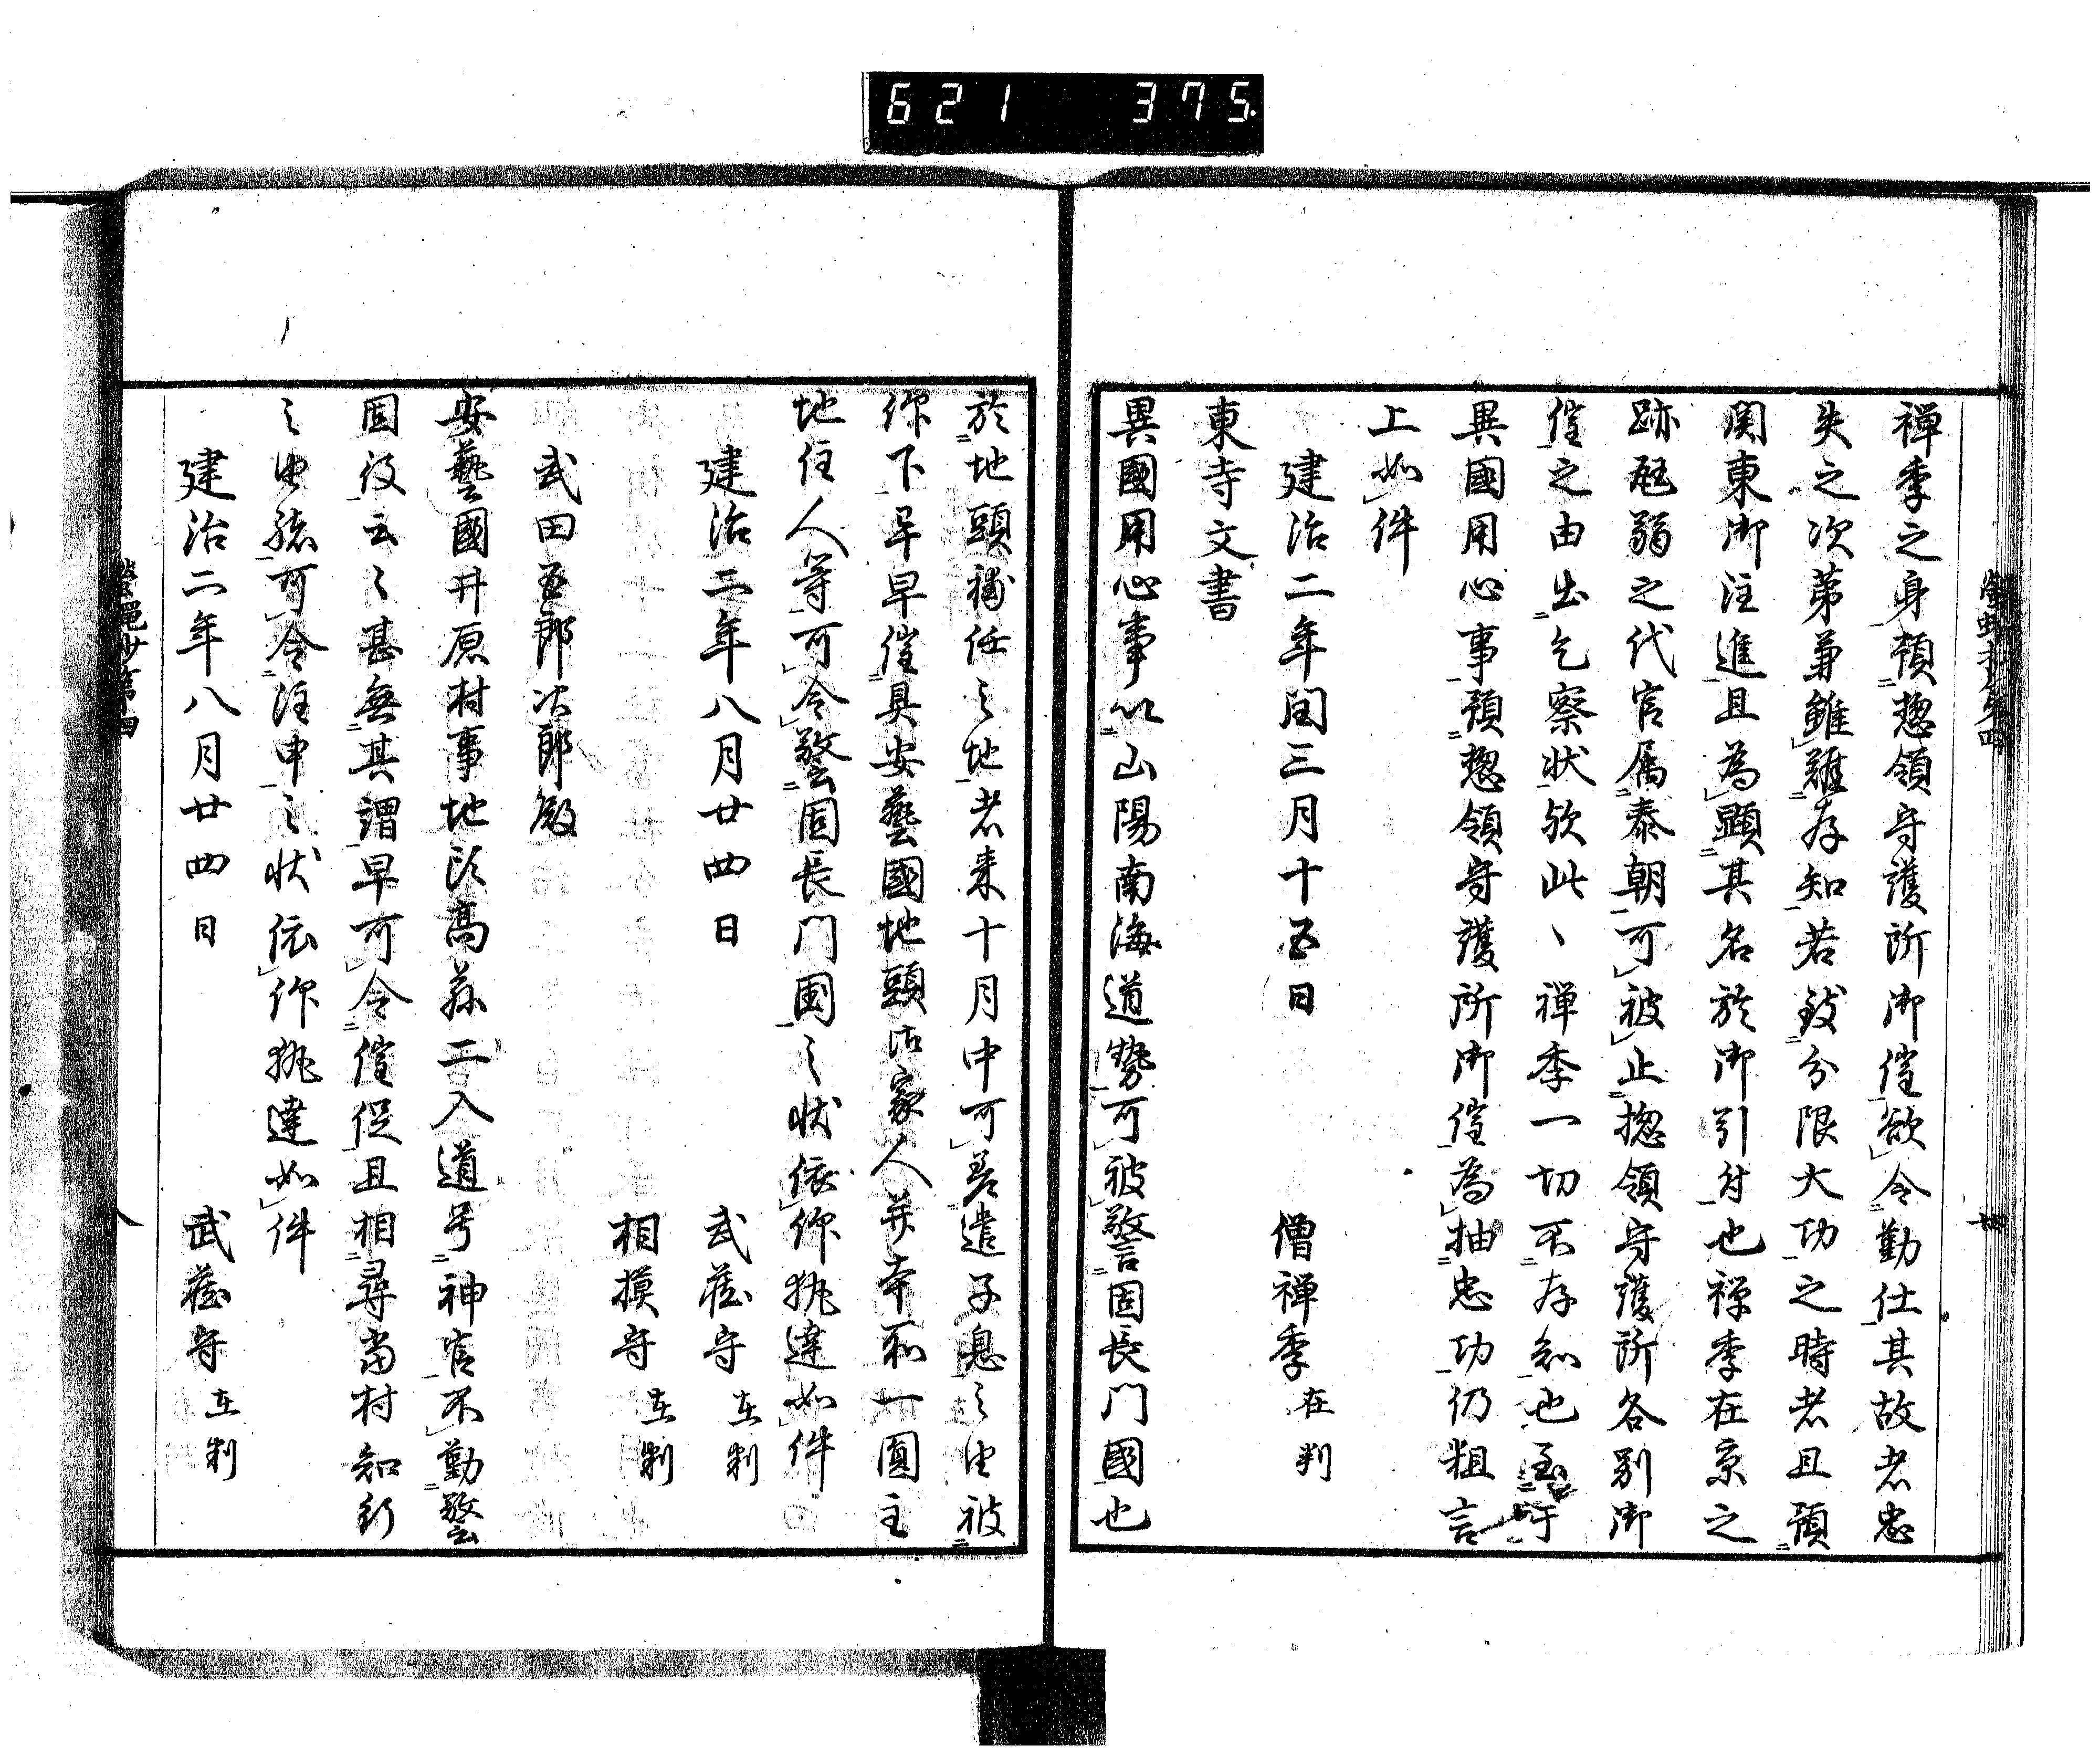 621 375
禅季之身預惣領守護所御催欲令勤仕其故者忠
失之次第兼雖難存知若致分限大功之時者且預
関東御注進且為顕其名於御引付也禅季在京之
跡尫弱之代官属泰朝可被止惣領守護所各別御
催之由出乞察状欤此、禅季一切不存知也至于
異國用心事預惣領守護所御催為抽忠功仍粗言
上如件
建治二年閏三月十五日 僧禅季在判
東寺文書
異國用心事以山陽南海道勢可被警固長門國也
於地頭補任之地者来十月中可差遣子息之由被
仰下早早催具安藝國地頭御家人并本所一圓
地住人等可令警固長門国之状依仰執達如件
建治二年八月廿四日 武蔵守在判
相摸守在判
武田五郎次郎殿
安藝國井原村事地頭高孫二入道号神官不勤警
固役云々甚無其謂早可令催促且相尋當村知行
之由緒可令注申之状依仰執達如件
建治二年八月廿四日 武蔵守在判
蠅抄第四
八